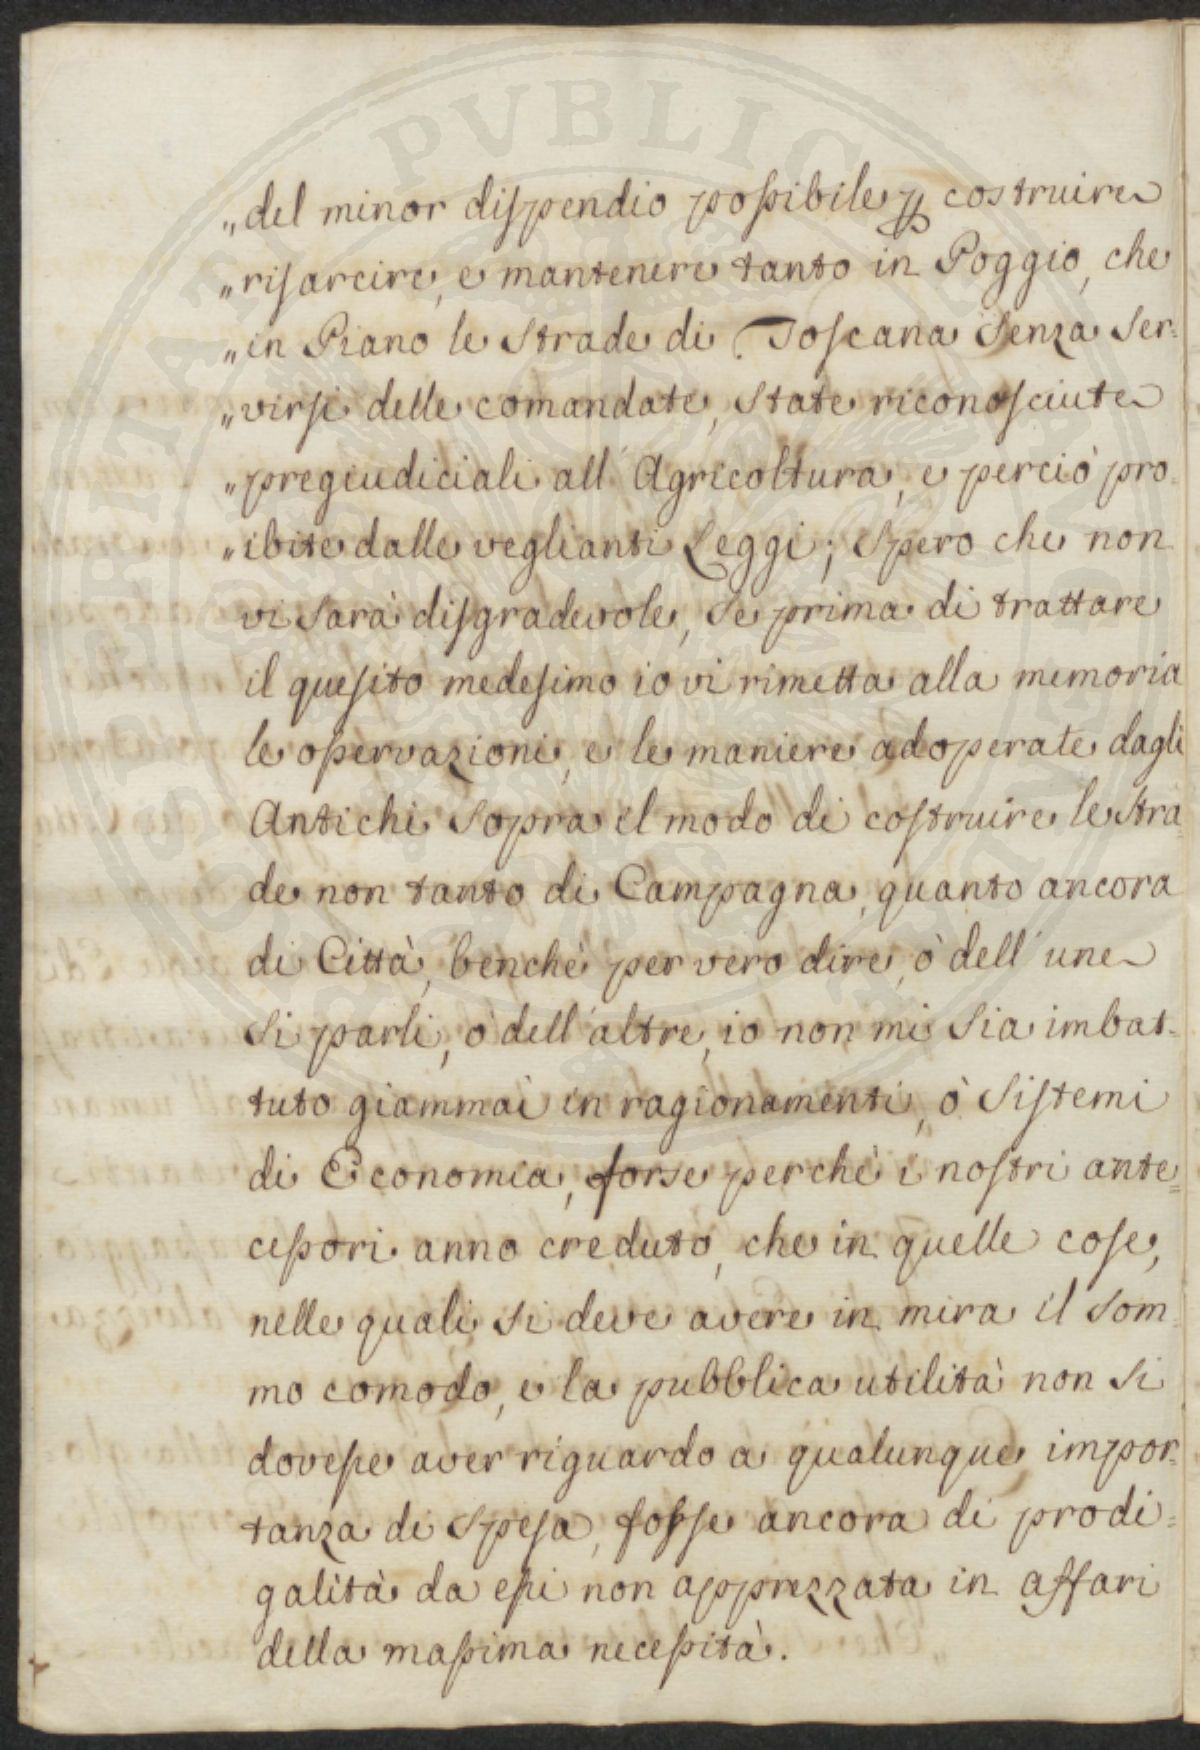 „del minor dispendio possibile p costruire
„risarcire, e mantenere tanto in Poggio, che
„in Piano le Strade di Toscana Senza Ser-
„virsi delle comandate, State riconosciute
„pregiudiciali all' Agricoltura, e perciò pro-
„ibite dalle veglianti Leggi; Spero che non
vi Sarà disgradevole, Se prima di trattare
il quesito medesimo io vi rimetta alla memoria
le osservazioni, e le maniere adoperate dagli
Antichi Sopra il modo di costruire le Stra-
de non tanto di Campagna, quanto ancora
di Città, benchè per vero dire, ò dell' une
Si parli, ò dell' altre, io non mi Sia imbat-
tuto giammai in ragionamenti, ò Sistemi
di Economia, forse perchè i nostri ante=
cessori anno creduto, che in quelle cose,
nelle quali Si deve avere in mira il Som-
mo comodo, e la pubblica utilità non Si
dovesse aver riguardo a qualunque impor=
tanza di Spesa, fosse ancora di prodi=
galità da essi non apprezzata in affari
della massima necessità.